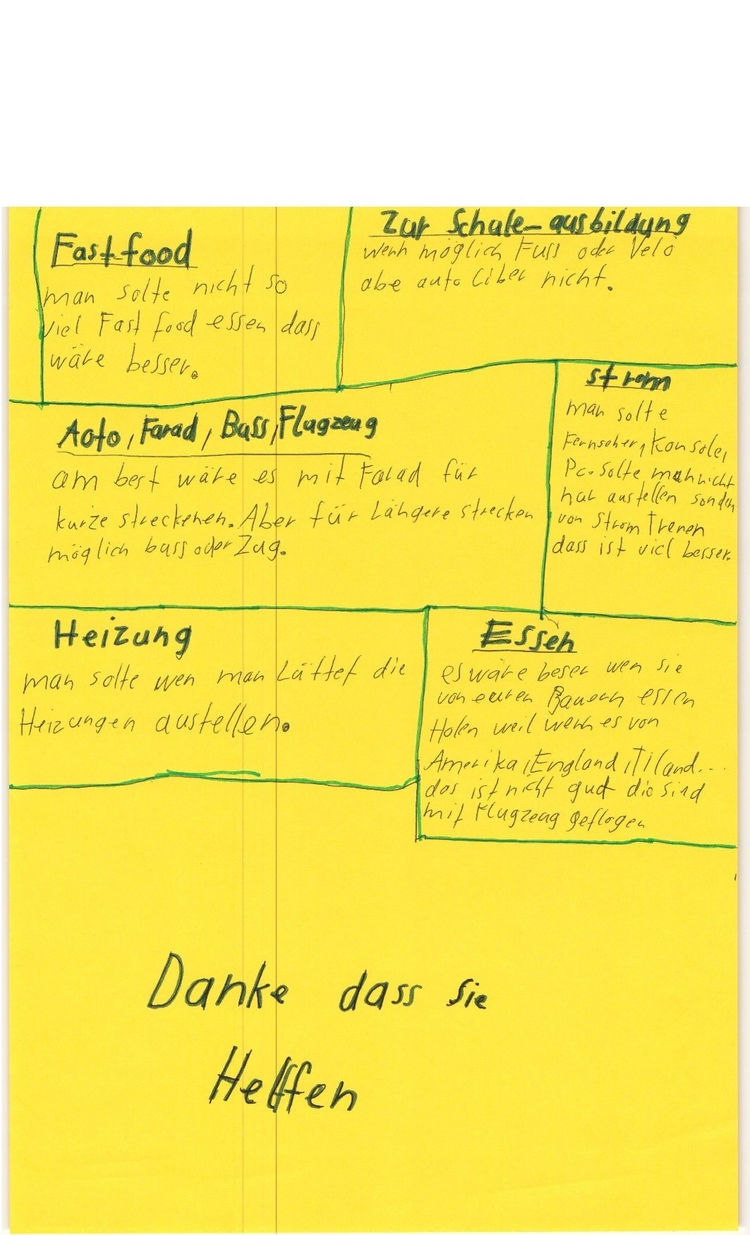 Fastfood
man solte nicht so
viel Fast food essen dass
wäre besser.
Zur Schule-ausbildung
wenn möglich Fuss oder Velo
abe auto Liber nicht.
Aoto, Farad, Buss, Flugzeug
am best wäre es mit Farad für
kurze streckenen. Aber für Längere strecken
möglich buss oder Zug.
strom
man solte
Fernseher, Konsole,
Pc. solte man nicht
nur austellen sonden
von Strom Trenen
dass ist viel besser.
Heizung
man solte wen man Lüftet die
Heizungen austellen.
Essen
es wäre beser wen sie
von euren Bauern essen
Holen weil wenn es von
Amerika, England, Tiland...
das ist nicht gud die sind
mit Flugzeug geflogen
Danke dass sie
Helffen